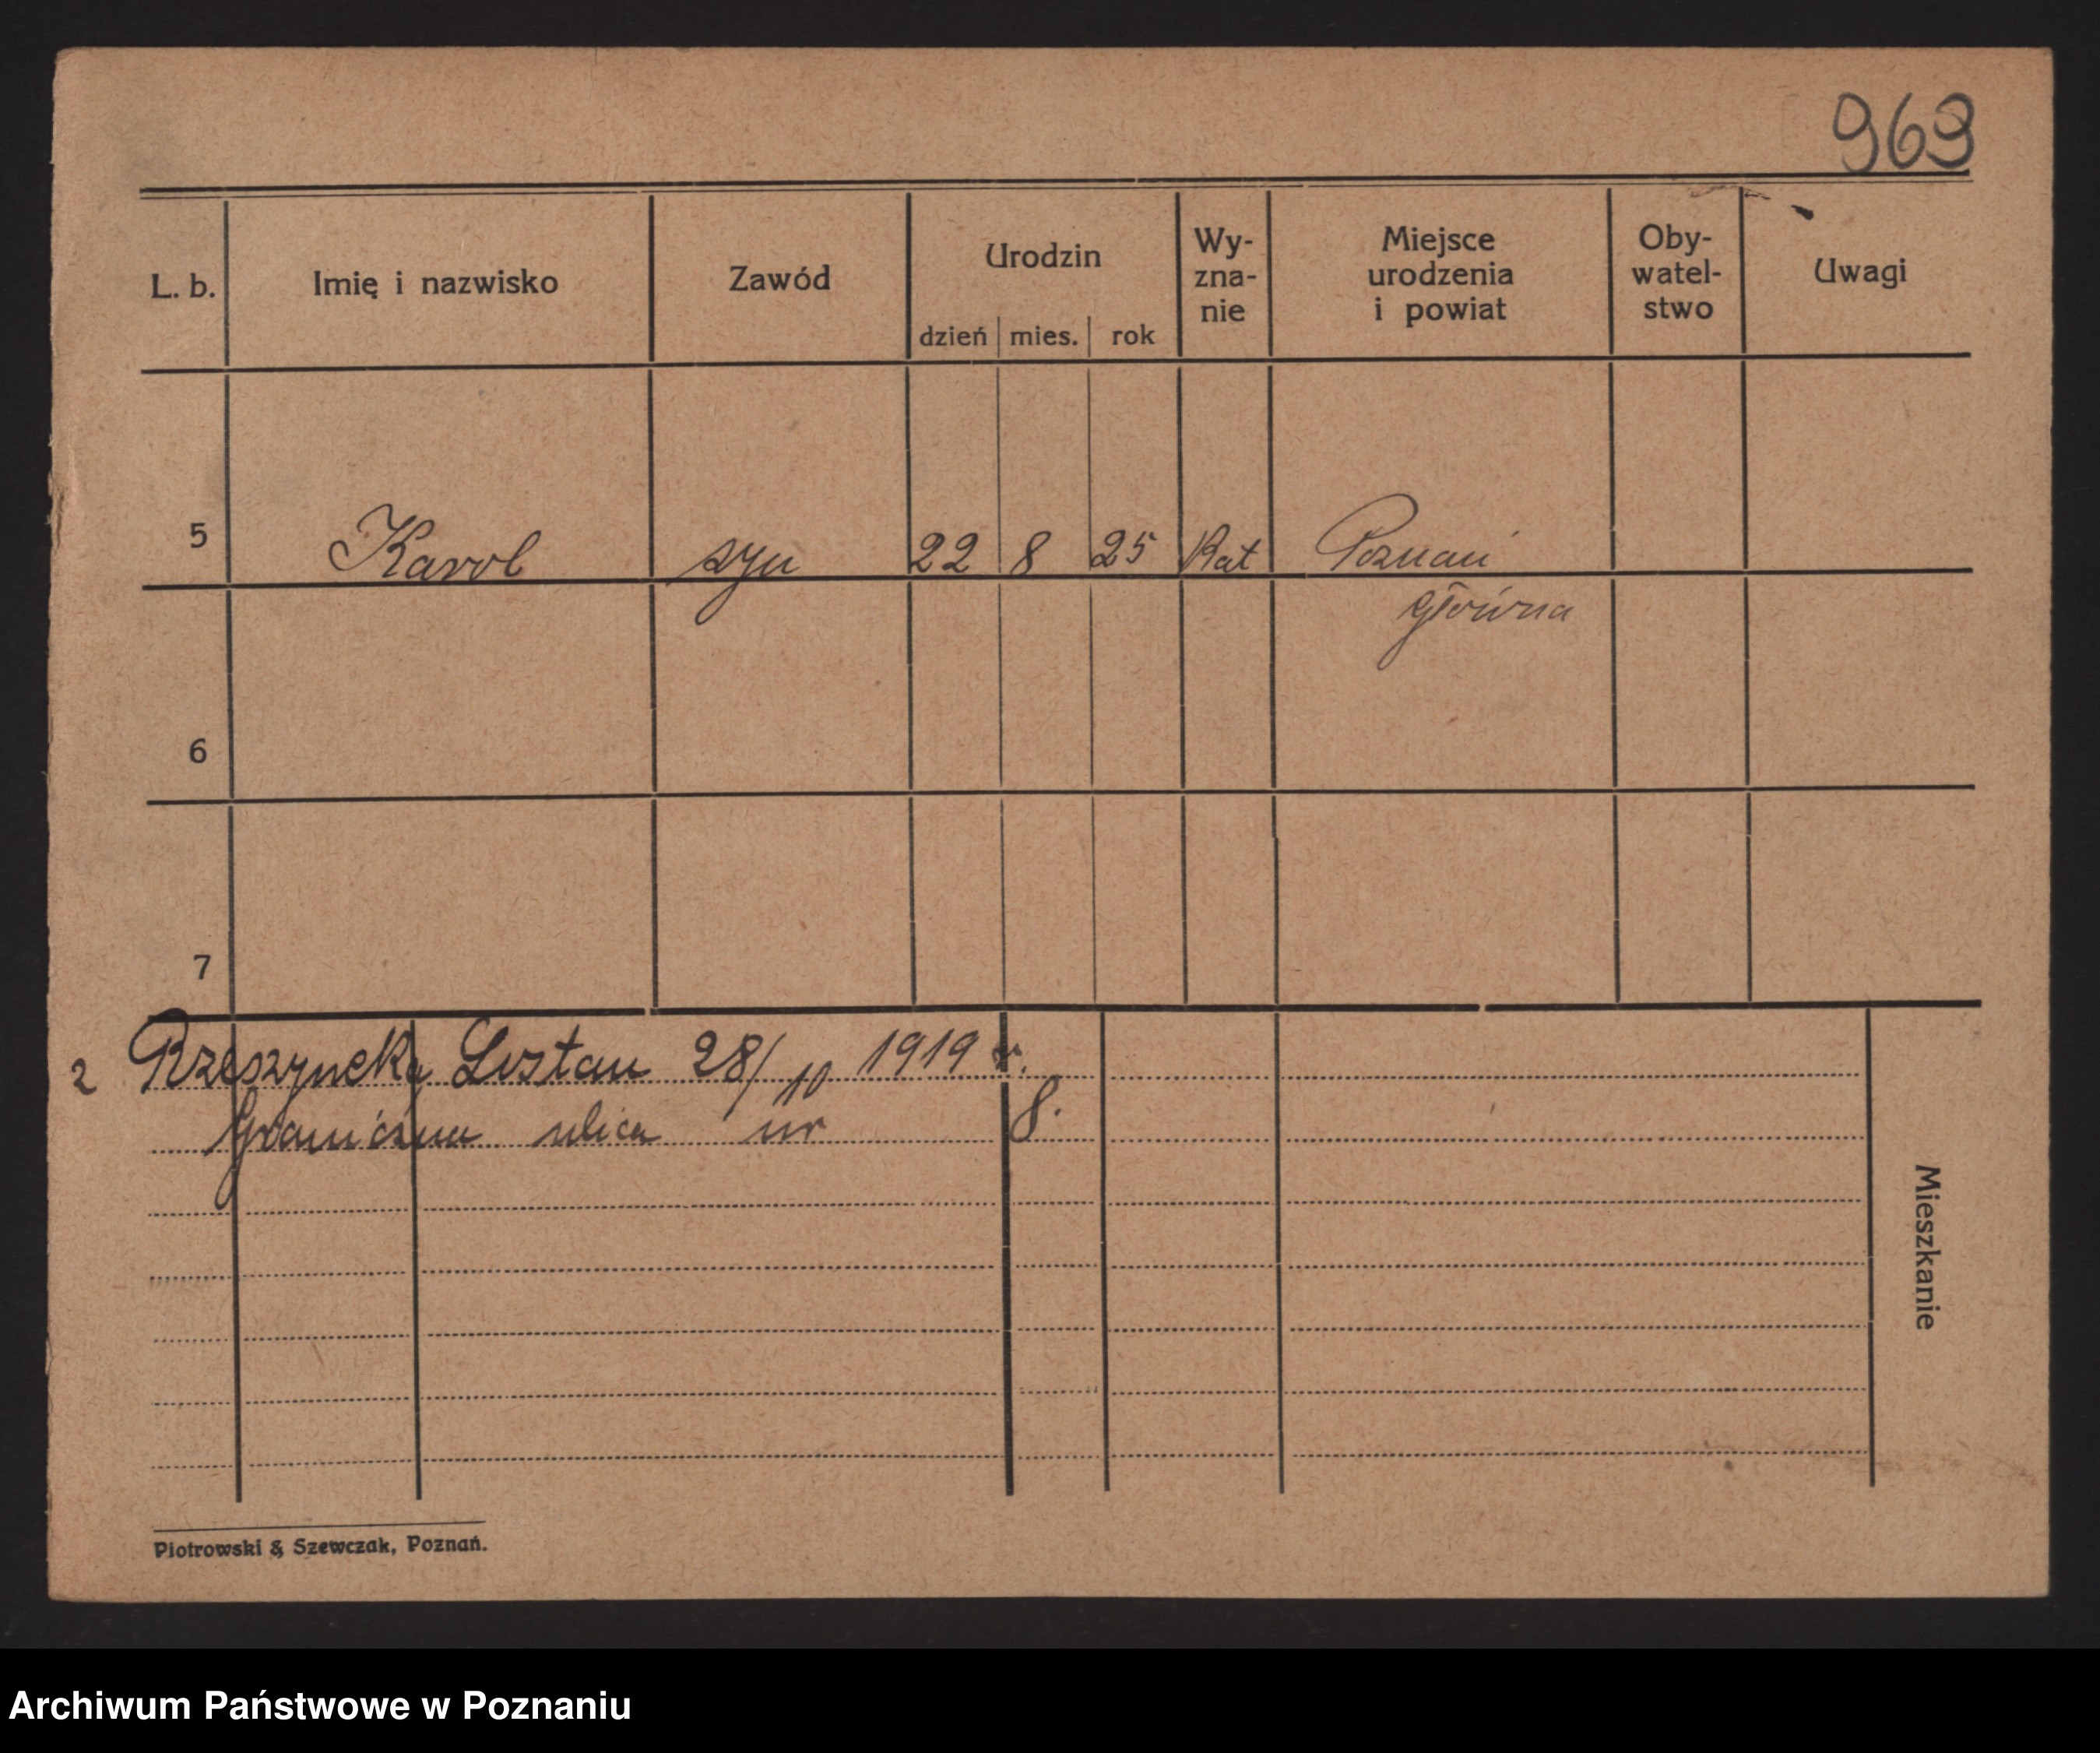 963
L. b.
Imię i nazwisko
Zawód
Urodzin
dzień mies. rok
Wy-
zna-
nie
Miejsce
urodzenia
i powiat
Oby-
watel-
stwo
Uwagi
5 Karol syn 22 8 25 Kat Poznań
główna
6
7
2 28/10 1919 r.
Graniczna ulica nr 8.
Mieszkanie
Piotrowski & Szewczak, Poznań.
Archiwum Państwowe w Poznaniu